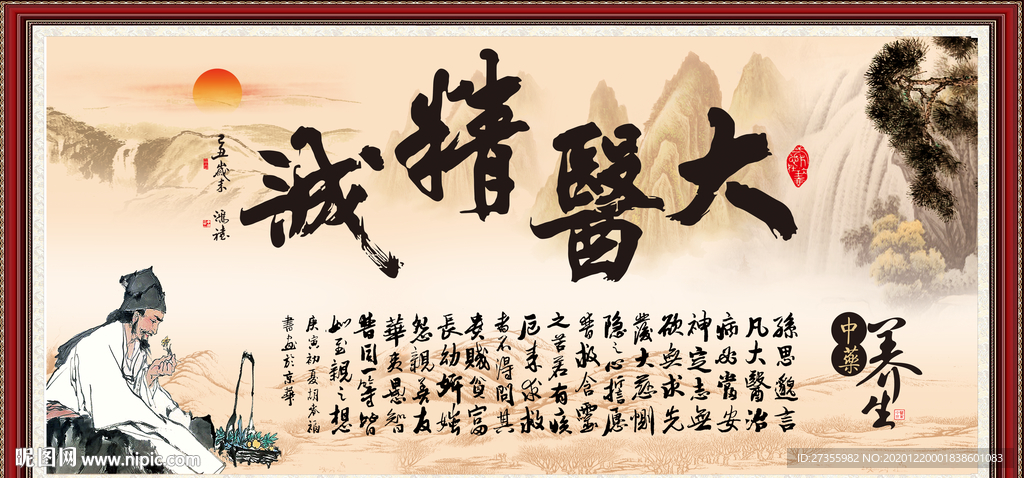 大醫精誠
己丑歲末
鴻禧
孫思邈言
凡大醫治
病必當安
神定志無
欲無求先
發大慈惻
隱之心誓愿
普救含靈
之苦若有疾
厄来求救
者不得問其
貴賤貧富
長幼妍媸
怨親善友
華夷愚智
普同一等皆
如至親之想
庚寅初夏胡
書於京華
中藥
养生
昵图网 www.nipic.com
ID:27355982 NO:20201220001838601083